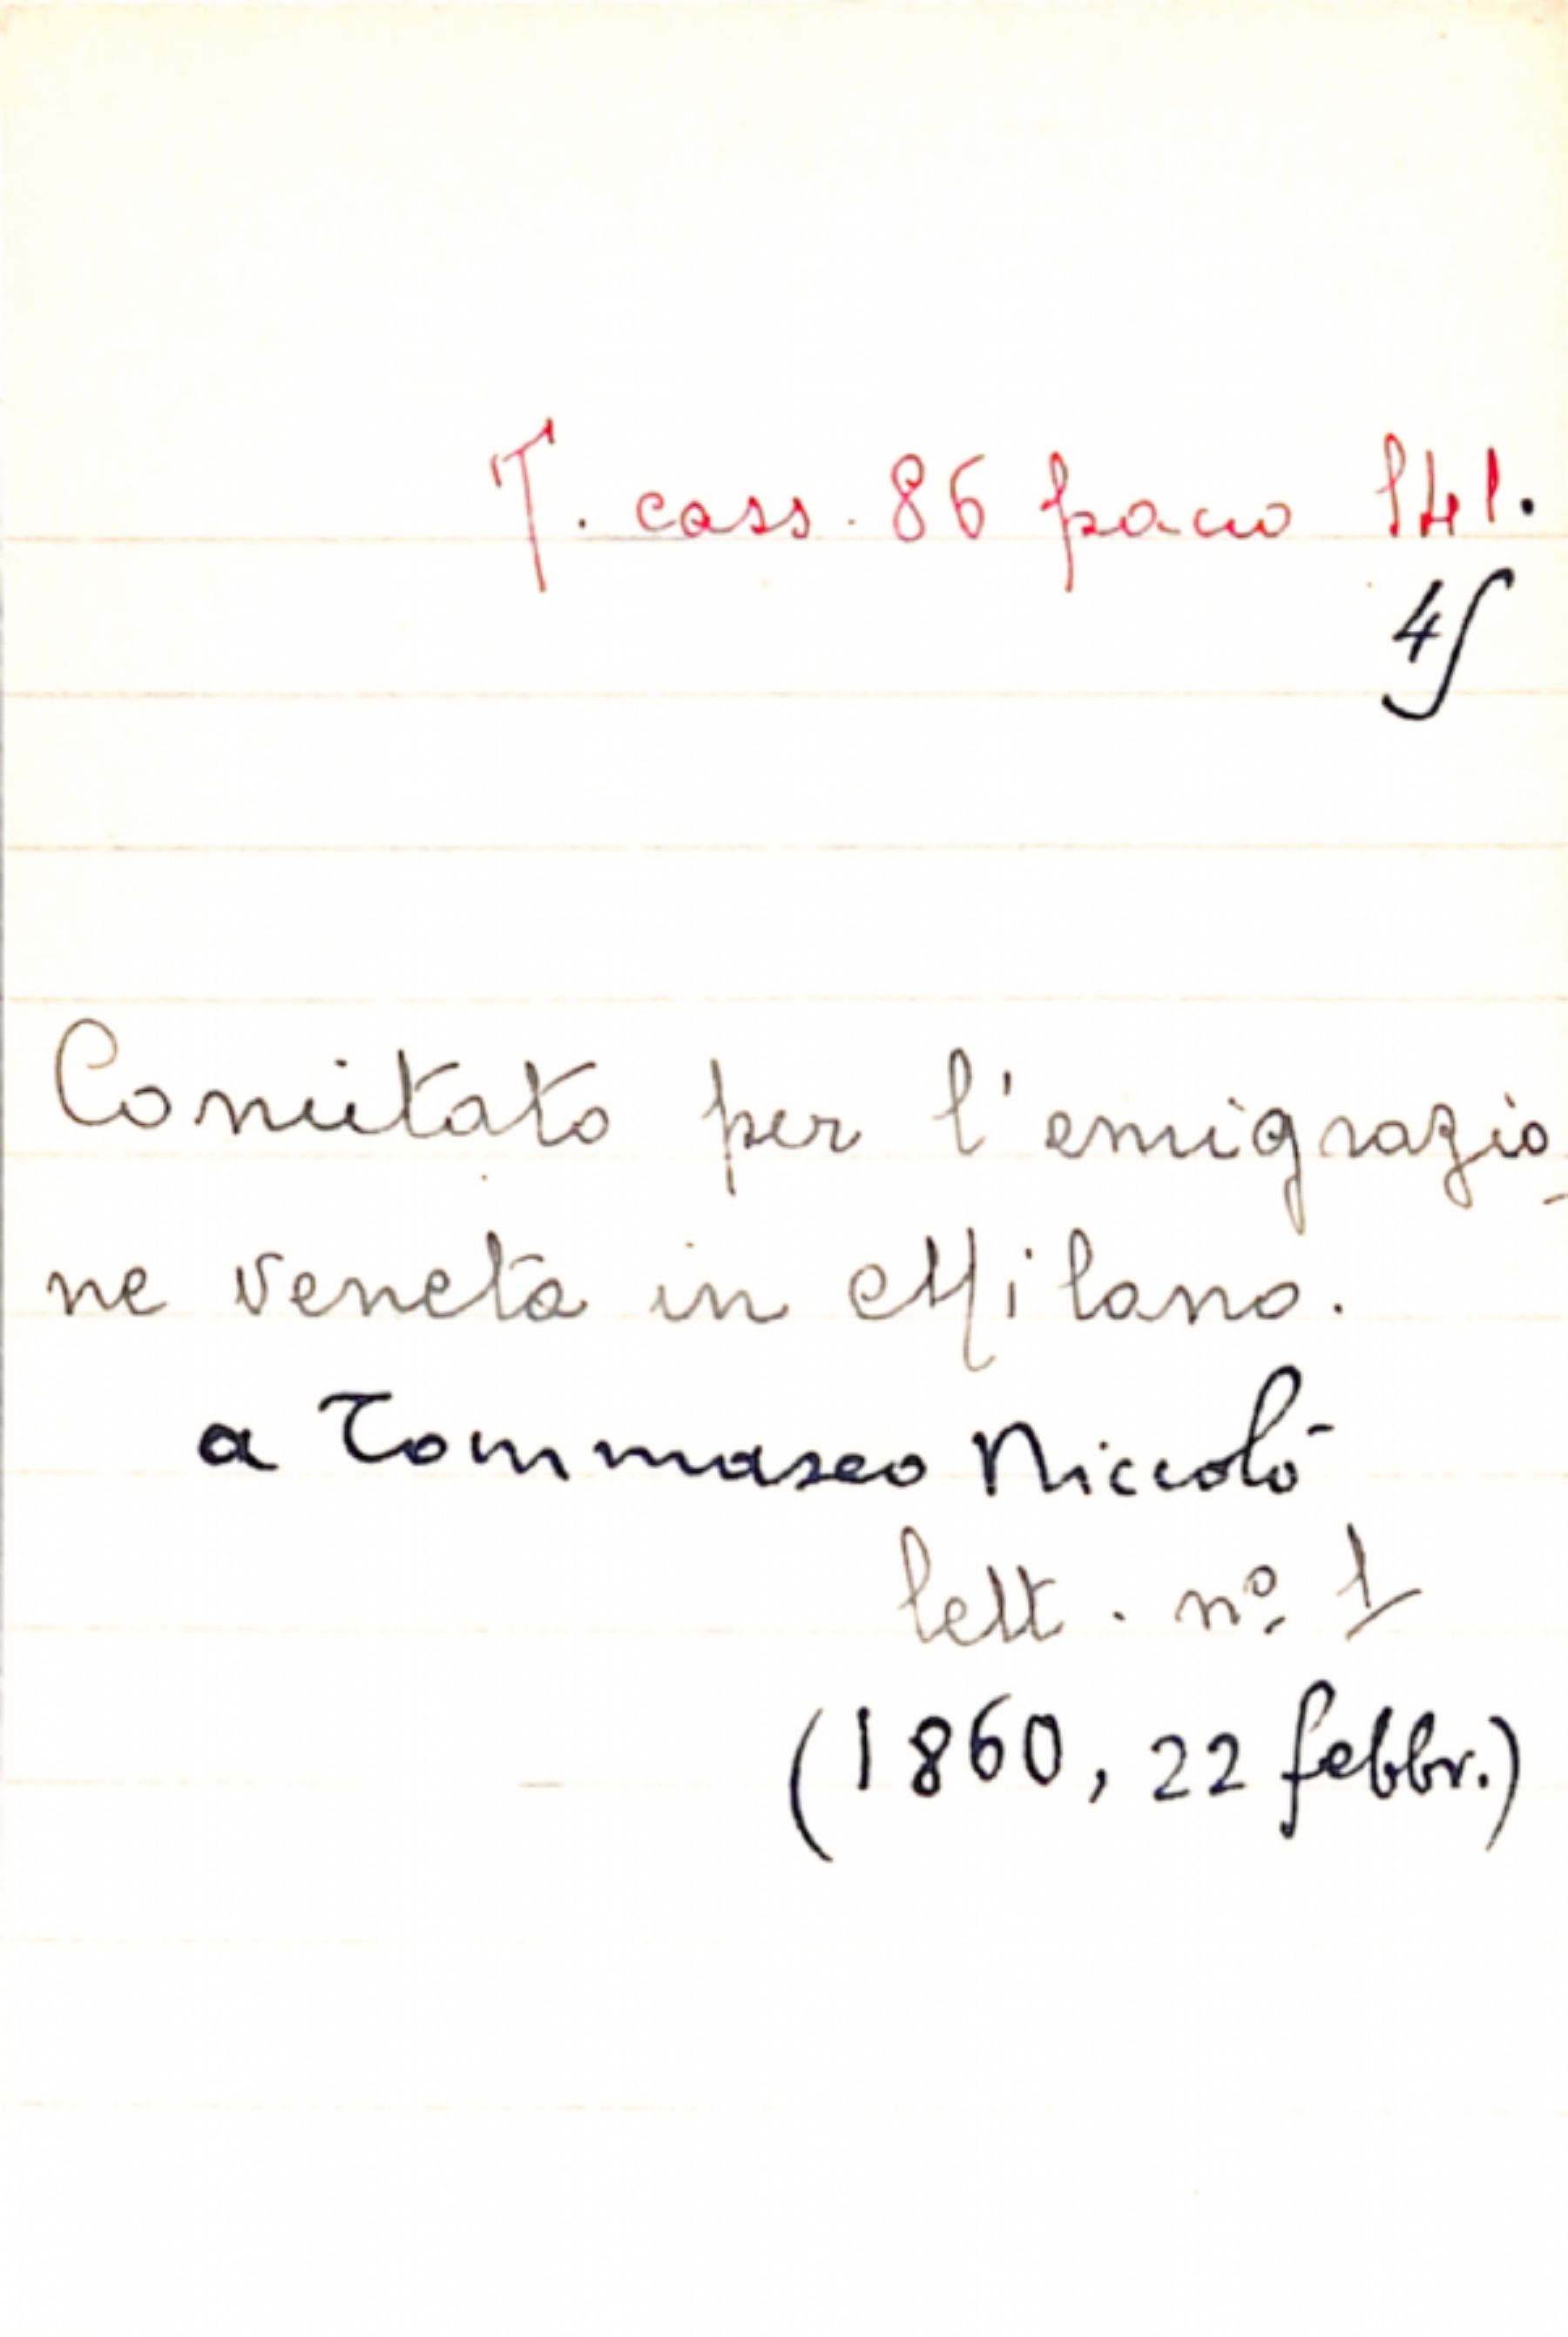 T. cass. 86 pacco 141.
45
Comitato per l'emigrazio-
ne veneta in Milano.
a Tommaseo Niccolò
lett. nº 1
(1860, 22 febbr.)